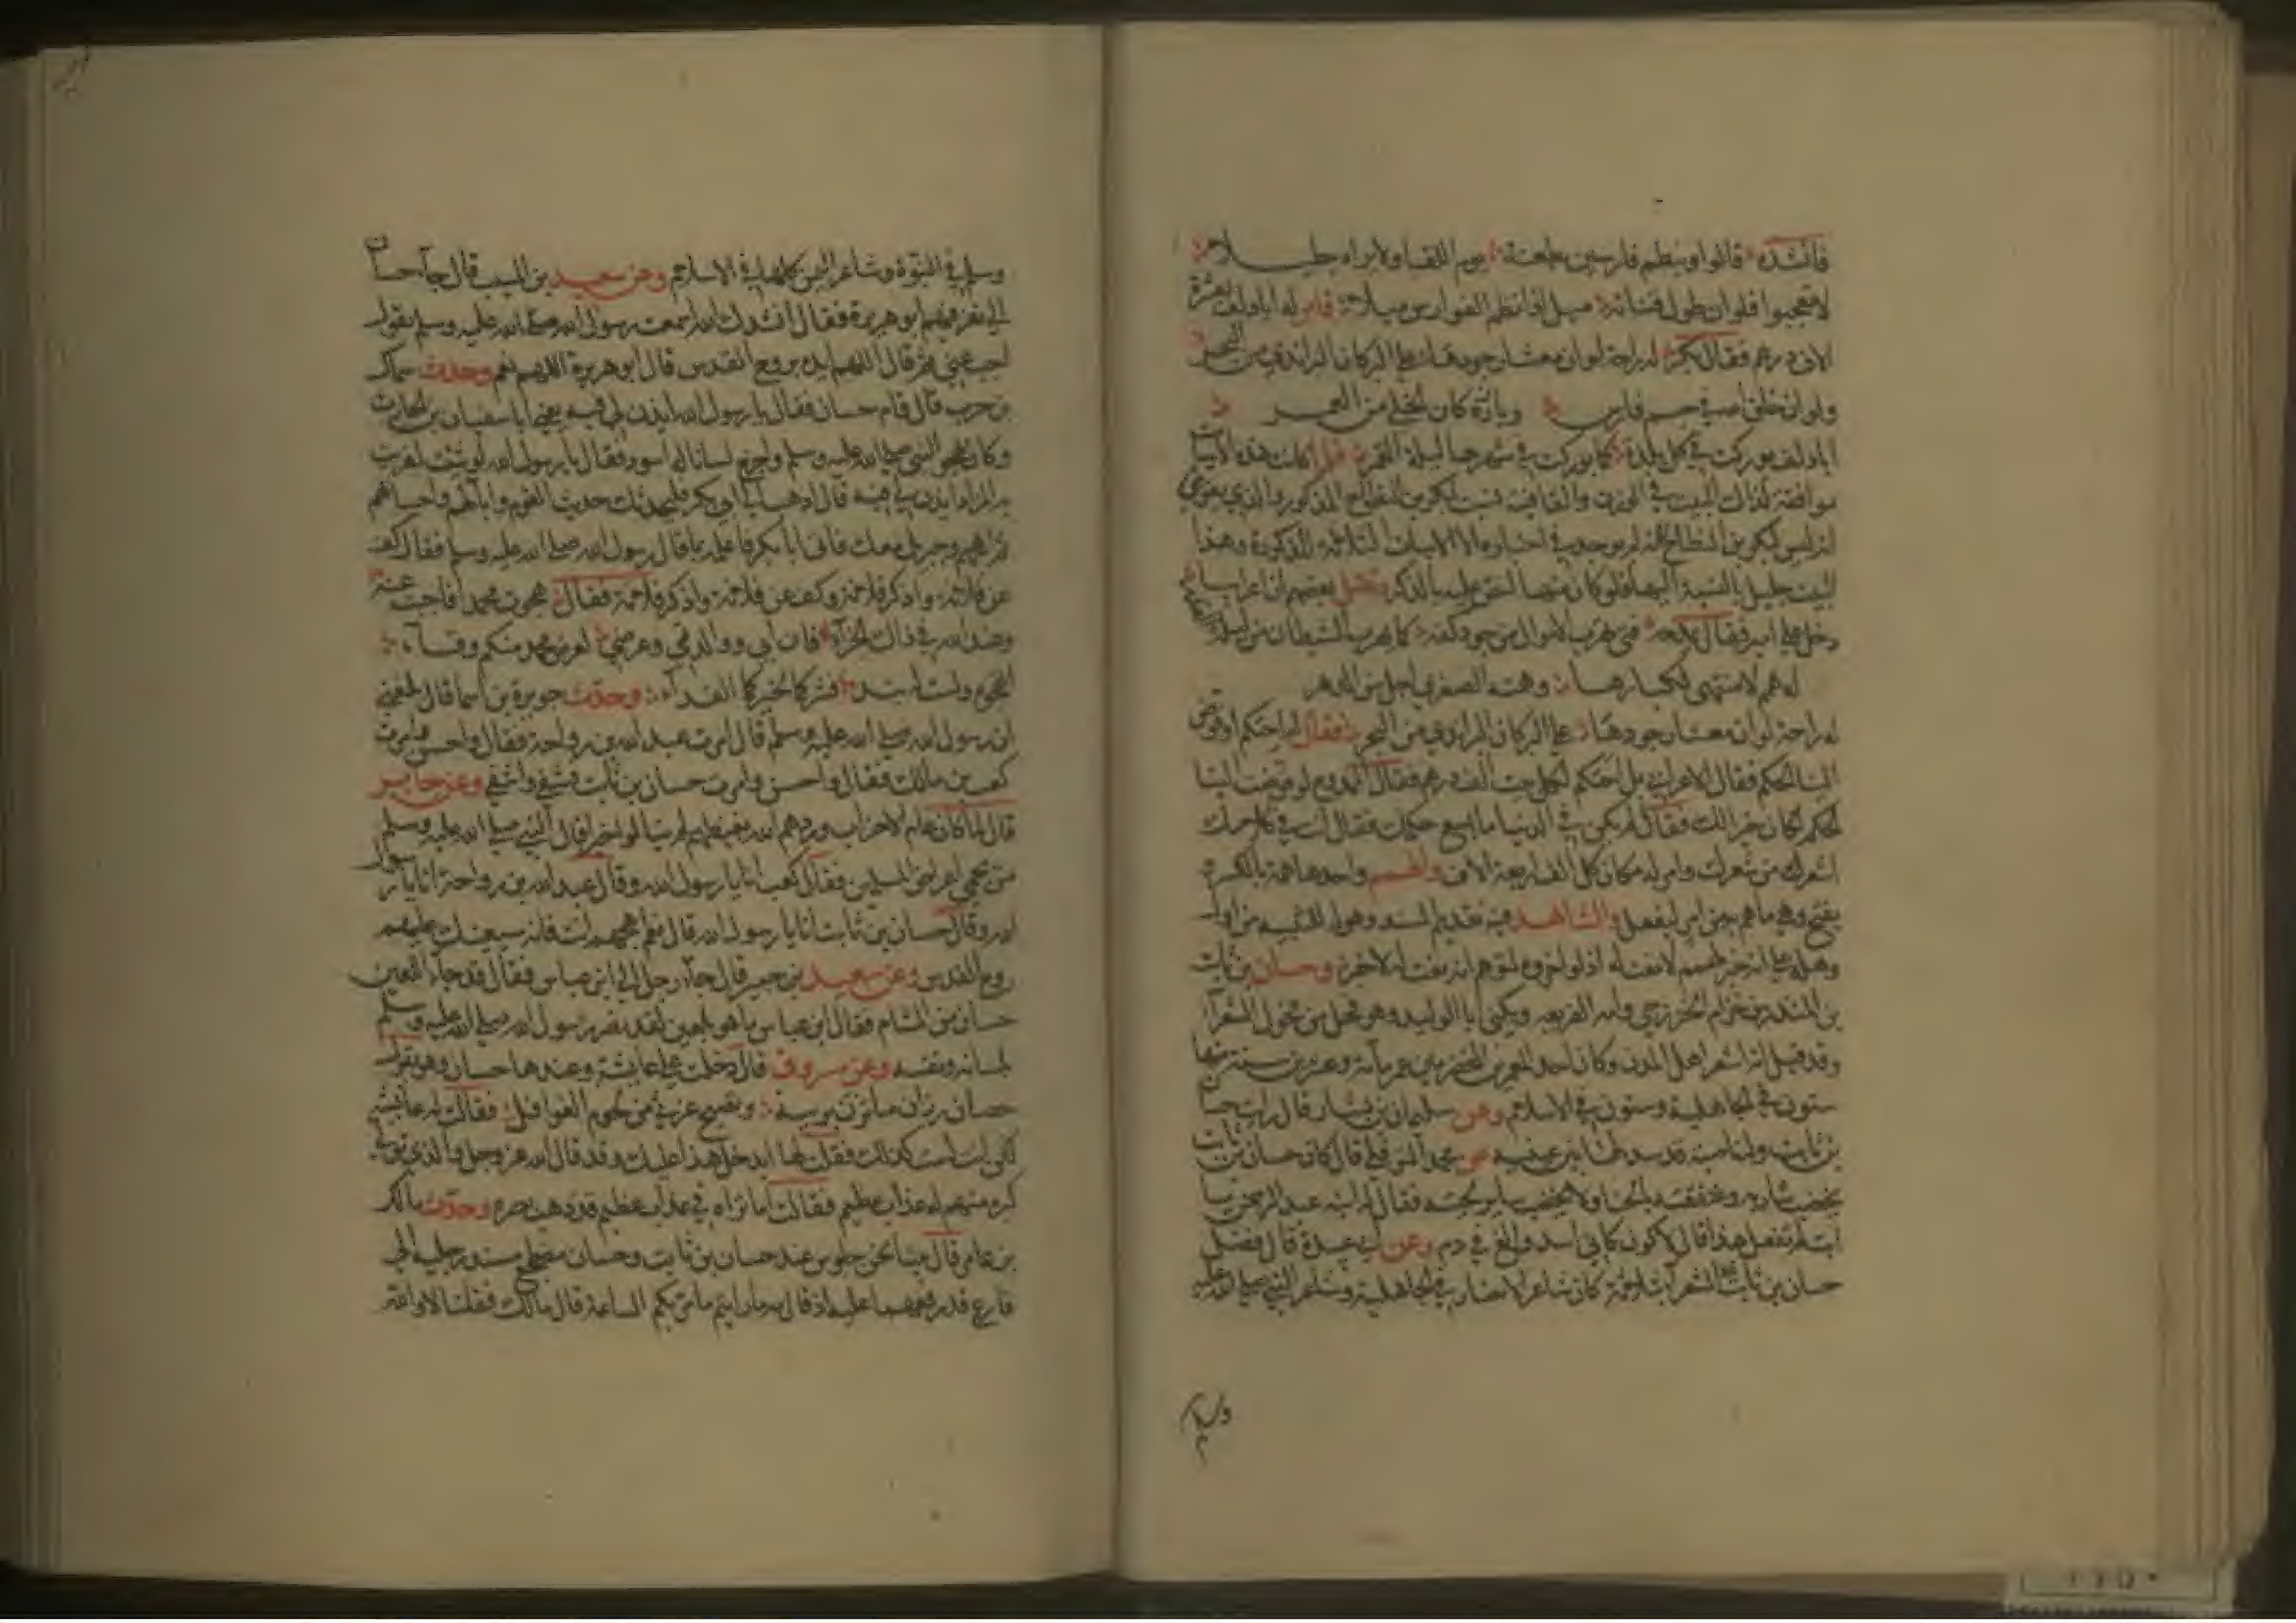 فانشده قالوا وينظم فارسين بطعنة يوم اللقا ولا يراه جليلا
لا تعجبوا فلو ان طول قناته ميل اذا نظم الفوارس ميلا فامر له ابو دلف بعشرة
الاف درهم فقال بكر له راحة لو ان معشار جودها على البر كان البر اندى من البحر
ولو ان خلق الله في جسم فارس وبارزه كان الخلي من العمر
ابا دلف بوركت في كل بلدة كما بوركت في شهرها ليلة القدر فلما كانت هذه الابيات
موافقة لذلك البيت في الوزن والقافية نسب لبكر بن النطاح المذكور والذي يقوى
انه ليس لبكر بن النطاح انه لم يوجد في اخباره الا الابيات الثلاثة المذكورة وهذا
البيت جليل بالنسبة اليها فلو كان منها لنص عليه بالذكر ونقل بعضهم ان اعرابيا
دخل على امير فقال يمدحه فتى تهرب الاموال من جود كفه كما يهرب الشيطان من ليلة القدر
له همم لا منتهى لكبارها وهمته الصغرى اجل من الدهر
له راحة لو ان معشار جودها على البر كان البر اندى من البحر فقال له احتكم او فوض
الينا الحكم فقال الاعرابي بل احتكم لكل بيت الف درهم فقال الممدوح لو فوضت الينا
الحكم لكان خيرا لك فقال لم يكن في الدنيا ما يسع حكمك فقال انت في كلامك
اشعر من شعرك وامر له مكان كل الف اربعة الاف والهمم واحدها همة بالكسر
يفتح وهي ما هم به من امر ليفعل والشاهد فيه تقديم المسند وهو له للتنبيه من اول
وهلة على انه خبر لهمم لا نعت له اذ لو اخر وع لتوهم انه نعت له لا خبر وحسان بن ثابت
بن المنذر بن حزام الخزرجي وامه الفريعه ويكنى ابا الوليد وهو فحل من فحول الشعرا
وقد قيل انه اشعر اهل المدن وكان احد المعمرين المخضرمين عمر مائة وعشرين سنة منها
ستون في الجاهلية وستون في الاسلام وعن سليمان بن يسار قال رايت حسان
بن ثابت وله ناصية قد سدلها بين عينيه وعن محمد النوفلي قال كان حسان بن ثابت
يخضب شاربه وعنفقته بالحنا ولا يخضب ساير لحيته فقال له ابنه عبد الرحمن يا
ابت لم تفعل هذا قال لاكون كاني اسد والغ في دم وعن ابي عبيدة قال فضل
حسان بن ثابت الشعرا بثلاثة كان شاعر الانصار في الجاهلية وشاعر النبي صلى الله عليه
وسلم
وسلم في النبوة وشاعر اليمن كلها في الاسلام وعن سعيد بن المسيب قال جآ حسان
الى نفر فيهم ابو هريرة فقال انشدك الله اسمعت رسول الله صلى الله عليه وسلم يقول
اجب عني ثم قال اللهم ايده بروح القدس قال ابو هريرة اللهم نعم وحدث سماك
بن حرب قال قام حسان فقال يا رسول الله ايذن لي فيه يعني ابا سفيان بن الحارث
وكان يهجو النبي صلى الله عليه وسلم واخرج لسانا له اسود فقال يا رسول الله لو شئت لفريت
به المزاد ايذن لي فيه قال اذهب الى ابي بكر فليحدثك حديث القوم وايامهم واحسابهم
ثم اهجهم وجبريل معك فاتى ابا بكر فاعلمه بما قال رسول الله صلى الله عليه وسلم فقال كف
عن فلانه واذكر فلانة وكف عن فلانة واذكر فلانة فقال هجوت محمدا فاجبت عنه
وعند الله في ذاك الجزآء فان ابي ووالدتي وعرضي لعرض محمد منكم وقآء
اتهجوه ولست له بند فشركما لخيركما الفدآء وحدث جويرة بن اسما قال بلغني
ان رسول الله صلى الله عليه وسلم قال امرت عبد الله بن رواحة فقال واحسن وامرت
كعب بن مالك فقال واحسن وامرت حسان بن ثابت فشفى واشتفى وعن جابر
قال لما كان عام الاحزاب وردهم الله بغيظهم لم ينالوا خيرا قال النبي صلى الله عليه وسلم
من يحمي اعراض المسلمين فقال كعب انا يا رسول الله وقال عبد الله بن رواحة انا يا رسول
الله وقال حسان بن ثابت انا يا رسول الله قال نعم اهجهم انت فانه سيعينك عليهم
روح القدس وعن سعيد بن جبير قال جآء رجل الى ابن عباس فقال قد جآء اللعين
حسان من الشام فقال ابن عباس ما هو بلعين لقد نصر رسول الله صلى الله عليه وسلم
بلسانه ونفسه وعن مسروق قال دخلت على عايشة وعندها حسان وهو يقول
حصان رزان ما تزن بريبة وتصبح غرثى من لحوم الغوافل فقالت له عايشة
لكن انت لست كذلك فقلت لها ايدخل هذا عليك وقد قال الله عز وجل والذي تولى
كبره منهم له عذاب عظيم فقالت اما تراه في عذاب عظيم قد ذهب بصره وحدث مالك
بن عامر قال بينا نحن جلوس عند حسان بن ثابت وحسان مضطجع مسند رجليه الى
فارع قد رفعهما عليه اذ قال مه اما رايتم ما مر بكم الساعة قال مالك فقلنا لا والله